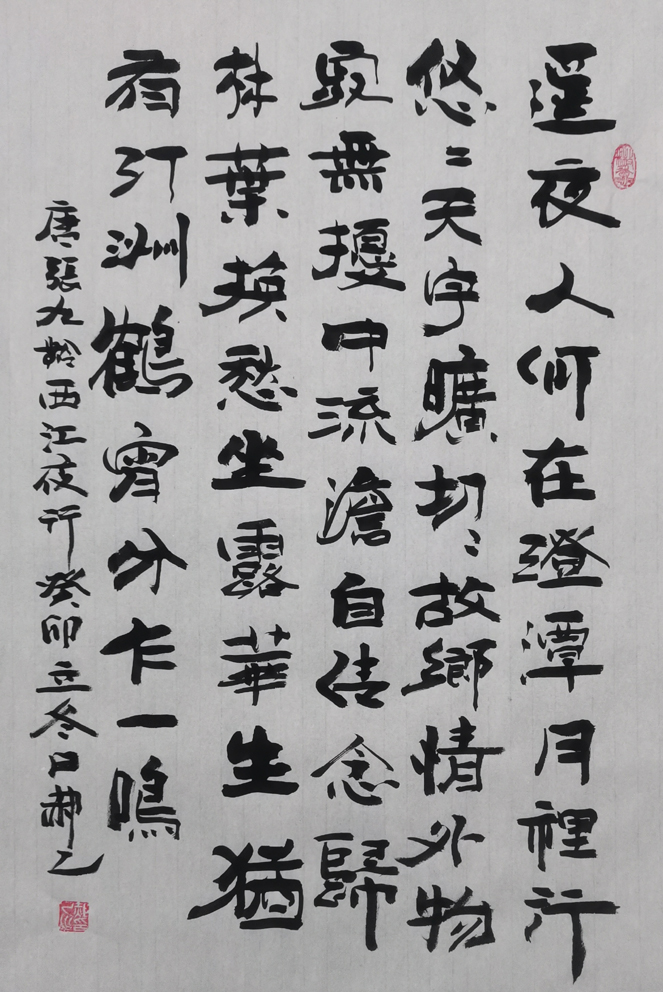 遙夜人何在澄潭月裡行
悠〻天宇曠切〻故鄉情外物
寂無擾中流澹自清念歸
林葉換愁坐露華生猶
有汀洲鶴宵分乍一鳴
唐張九齡西江夜行癸卯立冬日郝